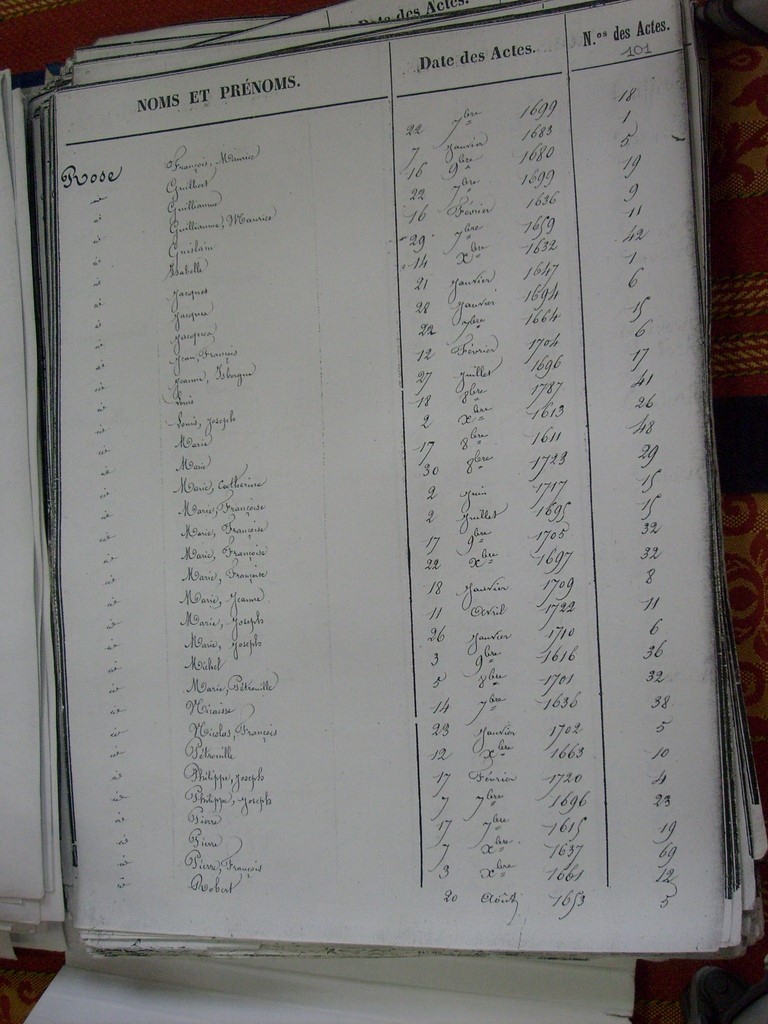 Date des Actes.
NOMS ET PRÉNOMS. Date des Actes. N.os des Actes.
101
Rose François, Maurice 22 7bre 1699 18
id Guilbert 7 Janvier 1683 1
id Guillianne 16 9bre 1680 5
id Guillianne, Maurice 22 7bre 1699 19
id Guislain 16 Février 1636 9
id Isabelle 29 7bre 1659 11
id Jacques 14 Xbre 1632 42
id Jacques 21 Janvier 1647 1
id Jacques 28 Janvier 1694 6
id Jean, François 22 7bre 1664 15
id Jeanne, Isbergue 12 Février 1704 6
id Louis 27 Juillet 1696 17
id Louis, Joseph 18 8bre 1787 41
id Marie 2 Xbre 1613 26
id Marie 17 8bre 1611 48
id Marie, Catherine 30 8bre 1723 29
id Marie, Françoise 2 Juin 1717 15
id Marie, Françoise 2 Juillet 1695 15
id Marie, Françoise 17 9bre 1705 32
id Marie, Françoise 22 Xbre 1697 32
id Marie, Jeanne 18 Janvier 1709 8
id Marie, Joseph 11 Avril 1722 11
id Marie, Joseph 26 Janvier 1710 6
id Michel 3 9bre 1616 36
id Marie, Pétronille 5 8bre 1701 32
id Nicaisse 14 7bre 1636 38
id Nicolas, François 23 Janvier 1702 5
id Pétronille 12 Xbre 1663 10
id Philippe, Joseph 17 Février 1720 4
id Philippe, Joseph 7 7bre 1696 23
id Pierre 17 7bre 1615 19
id Pierre 7 Xbre 1637 69
id Pierre, François 3 Xbre 1661 12
id Robert 20 Août 1653 5